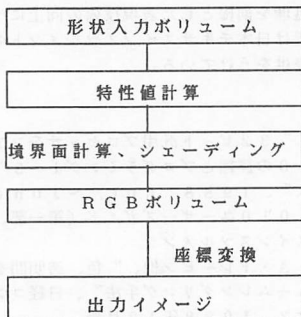 形状入力ボリューム
特性値計算
境界面計算、シェーディング
RGBボリューム
座標変換
出力イメージ